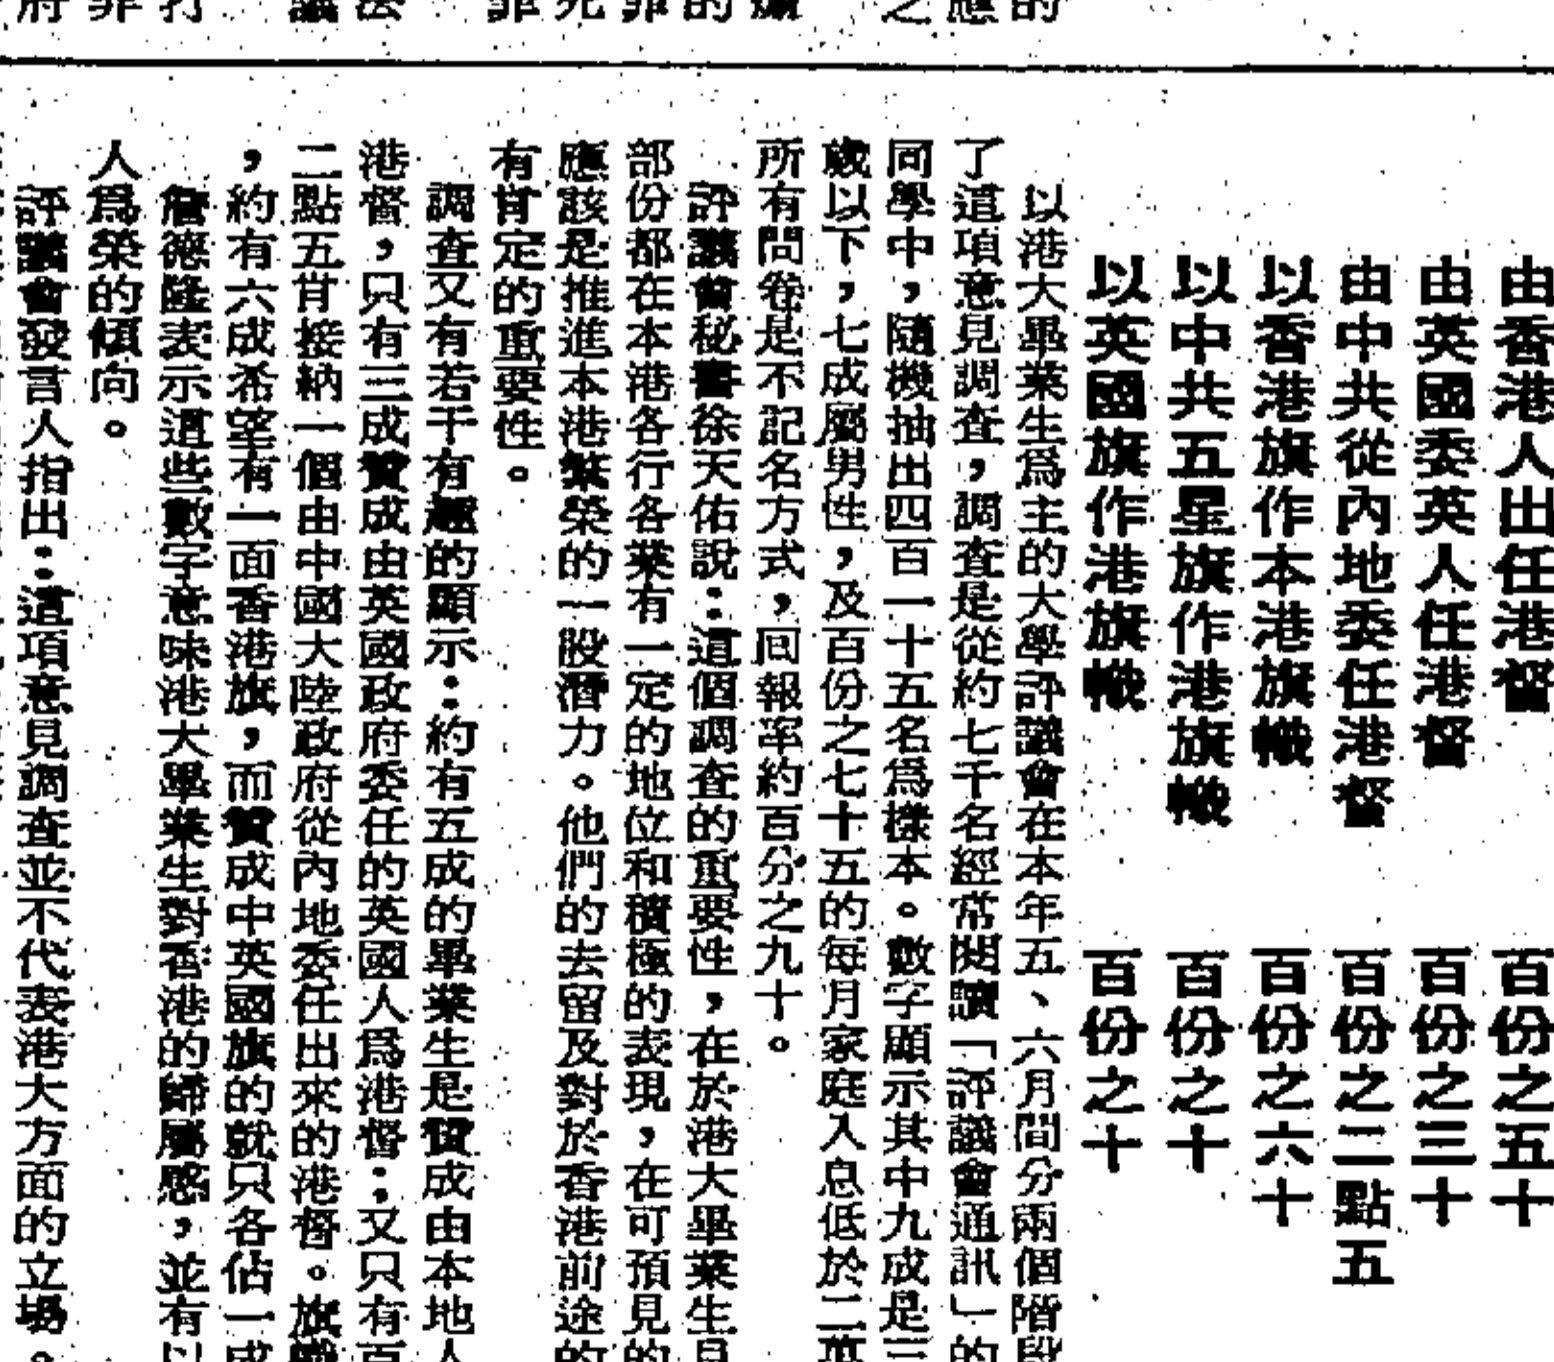 由香港人出任港督　百份之五十
由英國委英人任港督　百份之三十
由中共從內地委任港督　百份之二點五
以香港旗作本港旗幟　百份之六十
以中共五星旗作港旗幟　百份之十
以英國旗作港旗幟　百份之十
以港大畢業生爲主的大學評議會在本年五、六月間分兩個階段
了這項意見調查，調查是從約七千名經常閱讀「評議會通訊」的
同學中，隨機抽出四百一十五名爲樣本。數字顯示其中九成是三
歲以下，七成屬男性，及百份之七十五的每月家庭入息低於二萬
所有問卷是不記名方式，回報率約百分之九十。
評議會秘書徐天佑說：這個調查的重要性，在於港大畢業生目
部份都在本港各行各業有一定的地位和積極的表現，在可預見的
應該是推進本港繁榮的一股潛力。他們的去留及對於香港前途的
有肯定的重要性。
調查又有若干有趣的顯示：約有五成的畢業生是贊成由本地人
港督，只有三成贊成由英國政府委任的英國人爲港督；又只有百
二點五甘接納一個由中國大陸政府從內地委任出來的港督。旗幟
，約有六成希望有一面香港旗，而贊成中英國旗的就只各佔一成
詹德隆表示這些數字意味港大畢業生對香港的歸屬感，並有以
人爲榮的傾向。
評議會發言人指出：這項意見調查並不代表港大方面的立場。